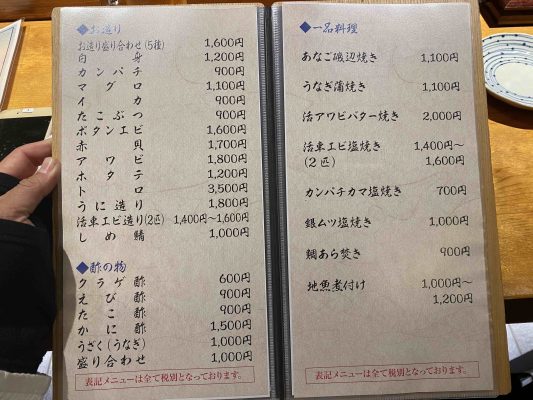 ◆お造り
お造り盛り合わせ(5種) 1,600円
白身 1,200円
カンパチ 900円
マグロ 1,100円
イカ 900円
たこぶつ 900円
ボタンエビ 1,600円
赤貝 1,700円
アワビ 1,800円
ホタテ 1,200円
トロ 3,500円
うに造り 1,800円
活車エビ造り(2匹) 1,400円〜1,600円
しめ鯖 1,000円
◆酢の物
クラゲ酢 600円
えび酢 900円
たこ酢 900円
かに酢 1,500円
うざく(うなぎ) 1,000円
盛り合わせ 1,000円
表記メニューは全て税別となっております。
◆一品料理
あなご磯辺焼き 1,100円
うなぎ蒲焼き 1,100円
活アワビバター焼き 2,000円
活車エビ塩焼き 1,400円〜
(2匹) 1,600円
カンパチカマ塩焼き 700円
銀ムツ塩焼き 1,000円
鯛あら焚き 900円
地魚煮付け 1,000円〜
1,200円
表記メニューは全て税別となっております。